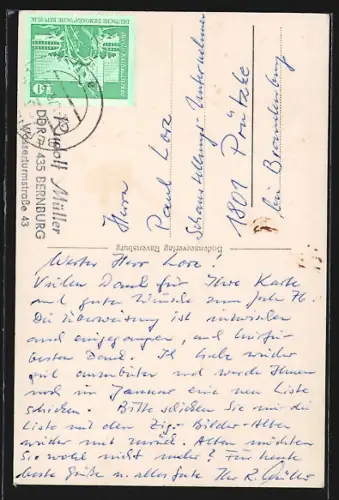 DEUTSCHE DEMOKRATISCHE REPUBLIK
10
Rudolf Müller
DDR 435 BERNBURG
Wasserturmstraße 43
Herrn
Paul Lorz
Schaustellungs-Unternehmen
1801 Prützke
bei Brandenburg
Bilderverlag Ravensburg
Werter Herr Lorz!
Vielen Dank für Ihre Karte
und guten Wünsche zum Jahr 76.
Die Überweisung ist inzwischen
auch eingegangen, auch hierfür
besten Dank. Ich habe wieder
viel anzubieten und werde Ihnen
noch im Januar eine neue Liste
schicken. Bitte schicken Sie mir die
Liste mit den Zig.-Bilder-Alben
wieder mit zurück. Alben möchten
Sie wohl nicht mehr? Für heute
beste Grüße u. alles Gute Ihr R. Müller